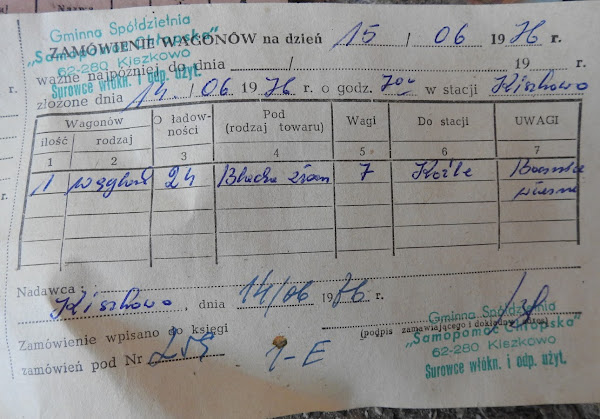 Gminna Spółdzielnia
"Samopomoc Chłopska"
62-280 Kiszkowo
Surowce włókn. i odp. użyt.
ZAMÓWIENIE WAGONÓW na dzień 15 / 06 1976 r.
ważne najpóźniej do dnia / 19 r.
złożone dnia 14. 06 1976 r. o godz. 7oo w stacji Kiszkowo
Wagonów O ładow-ności Pod (rodzaj towaru) Wagi Do stacji UWAGI
ilość rodzaj
1 2 3 4 5 6 7
1 węglark 24 Blacha złom 7 Koźle własne
Nadawca:
Kiszkowo, dnia 14/06 1976 r.
Zamówienie wpisano do księgi
zamówień pod Nr 259 1-E
(podpis zamawiającego i dokładny adres)
Gminna Spółdzielnia
"Samopomoc Chłopska"
62-280 Kiszkowo
Surowce włókn. i odp. użyt.
r.
r.